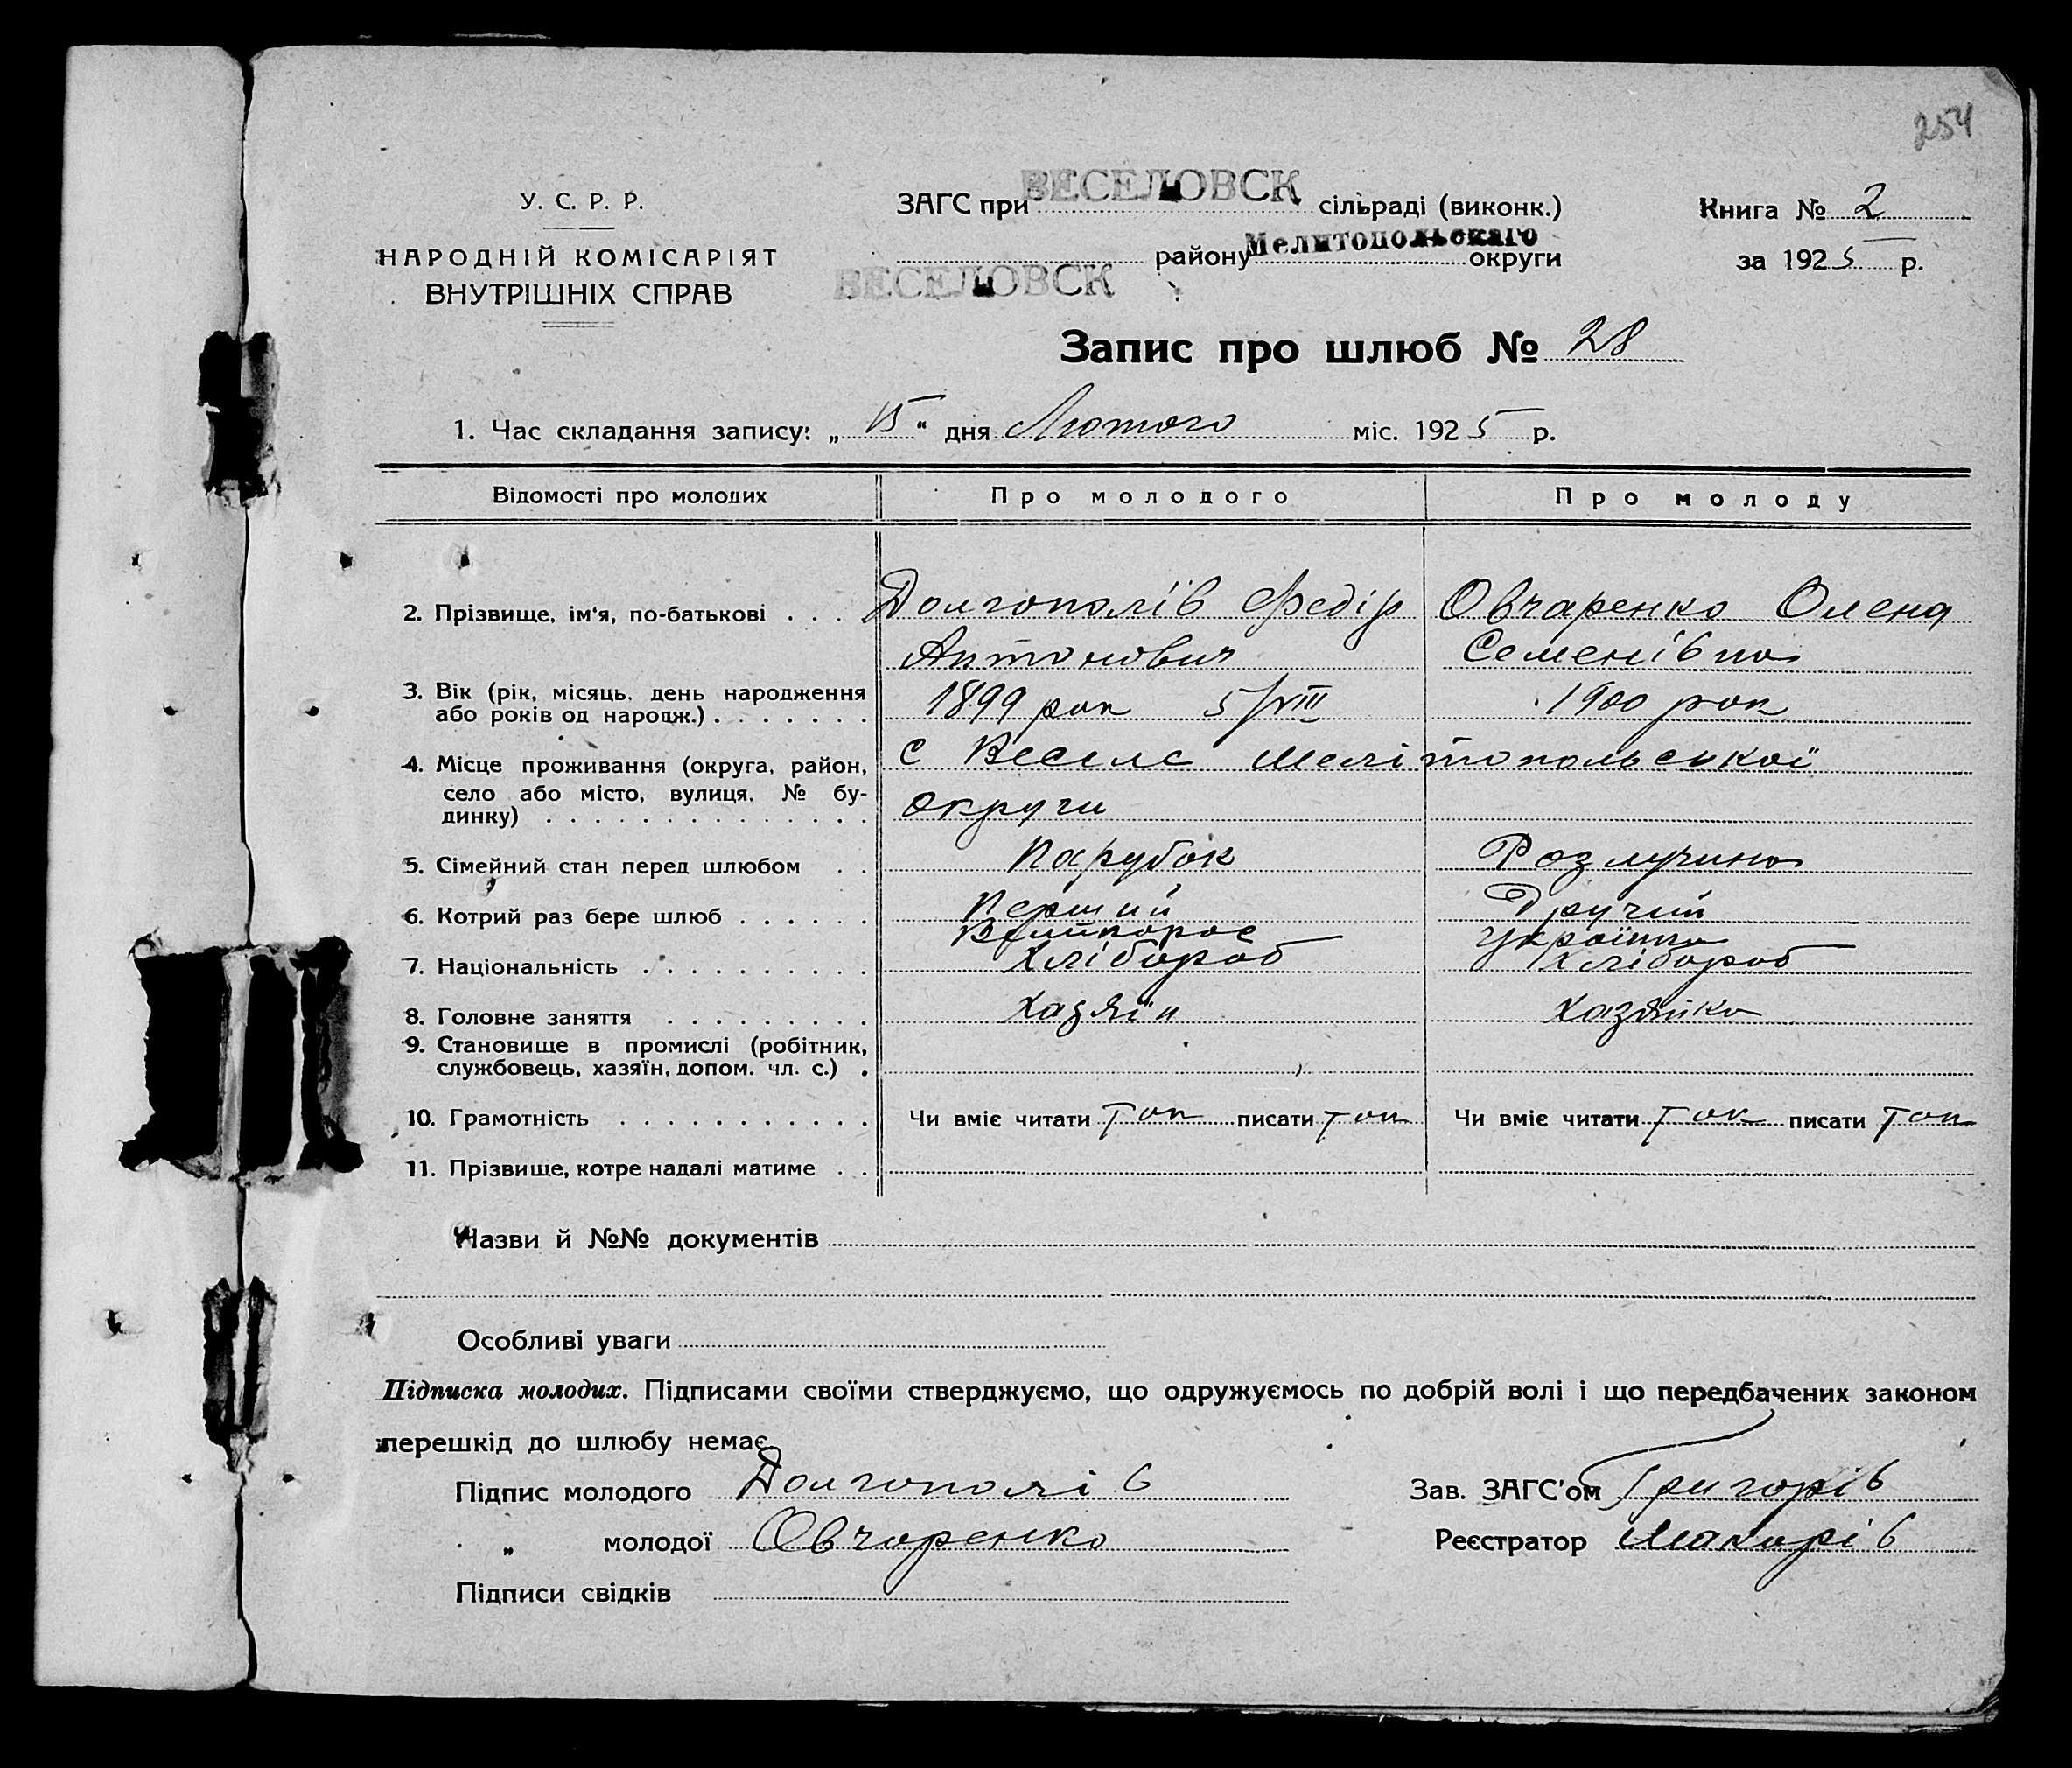 254
У. С. Р. Р.
НАРОДНІЙ КОМІСАРІЯТ
ВНУТРІШНІХ СПРАВ
ЗАГС при ВЕСЕЛОВСК сільраді (виконк.)
ВЕСЕЛОВСК району Мелитопольскаго округи
Книга № 2
за 1925 р.
Запис про шлюб № 28
1. Час складання запису: „ 15 “ дня Лютого міс. 1925 р.
Відомості про молодих Про молодого Про молоду
2. Прізвище, ім'я, по-батькові . . . Долгополів Федір Овчаренко Олена
Антонович Семенівна
3. Вік (рік, місяць, день народження
або років од народж.) . . . . . . . 1899 рок 5/VIII 1900 рок
4. Місце проживання (округа, район, с Веселе Мелітопольської
село або місто, вулиця, № бу-
динку) . . . . . . . . . . . . . . округи
5. Сімейний стан перед шлюбом . . Парубок Розлучина
6. Котрий раз бере шлюб . . . . . . Перший Другий
Великорос Українка
7. Національність . . . . . . . . . . Хлібороб Хлібороб
8. Головне заняття . . . . . . . . . Хазяїн Хазяйка
9. Становище в промислі (робітник,
службовець, хазяїн, допом. чл. с.) .
10. Грамотність . . . . . . . . . . . Чи вміє читати Так писати так Чи вміє читати Так писати Так
11. Прізвище, котре надалі матиме . .
Назви й №№ документів
Особливі уваги
Підписка молодих. Підписами своїми стверджуємо, що одружуємось по добрій волі і що передбачених законом
перешкід до шлюбу немає.
Підпис молодого Долгополів Зав. ЗАГС'ом Григорів
„ молодої Овчаренко Реєстратор Макарів
Підписи свідків